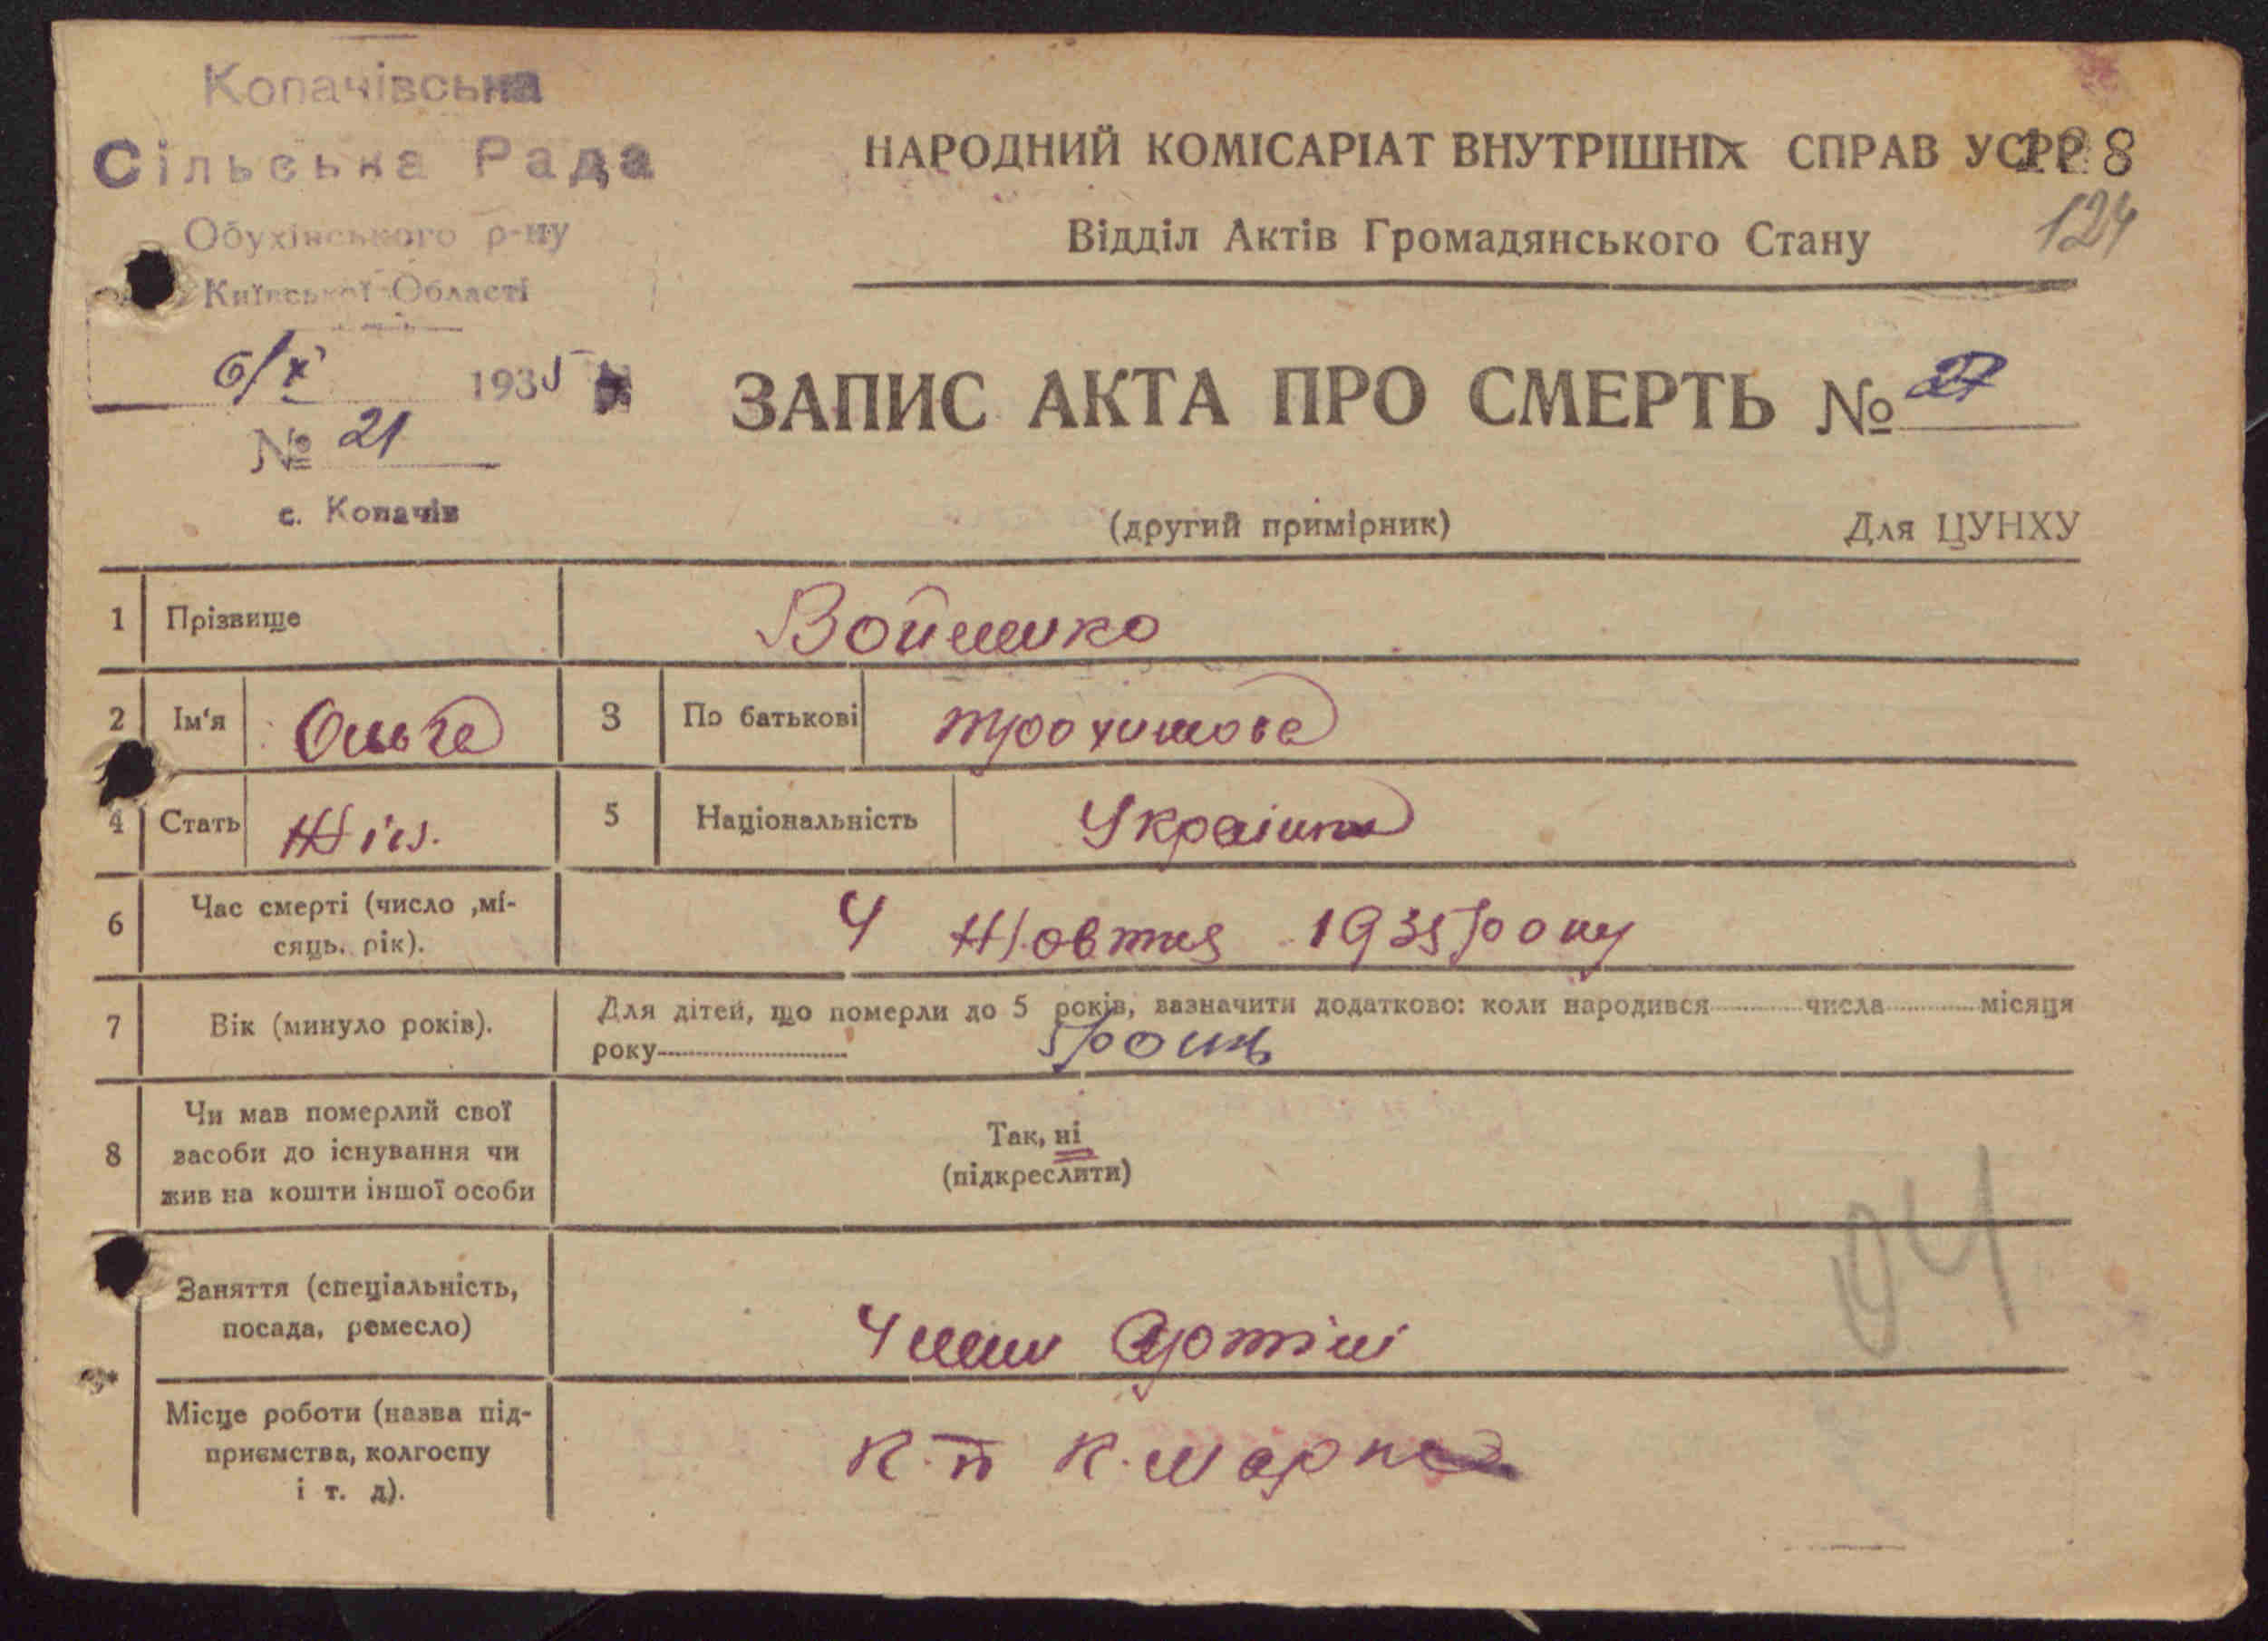 Копачівська
Сільська Рада
Обухівського р-ну
Київської Області
6/X 1935
№ 21
с. Копачів
НАРОДНИЙ КОМІСАРІАТ ВНУТРІШНІХ СПРАВ УСРР
128
Відділ Актів Громадянського Стану
124
ЗАПИС АКТА ПРО СМЕРТЬ №
(другий примірник) Для ЦУНХУ
1 Прізвище Войшко
2 Ім'я Ольга 3 По батькові Трохимова
4 Стать Жін. 5 Національність Українка
6 Час смерті (число ,мі-
сяць. рік). 4 Жовтня 1935 року
7 Вік (минуло років). Для дітей, що померли до 5 років, вазначити додатково: коли народився числа місяця
року 5 років
8 Чи мав померлий свої
засоби до існування чи
жив на кошти іншої особи
Так, ні
(підкреслити)
Заняття (спеціальність,
посада, ремесло) Член Артілі
04
Місце роботи (назва під-
приємства, колгоспу
і т. д). К. Маркса